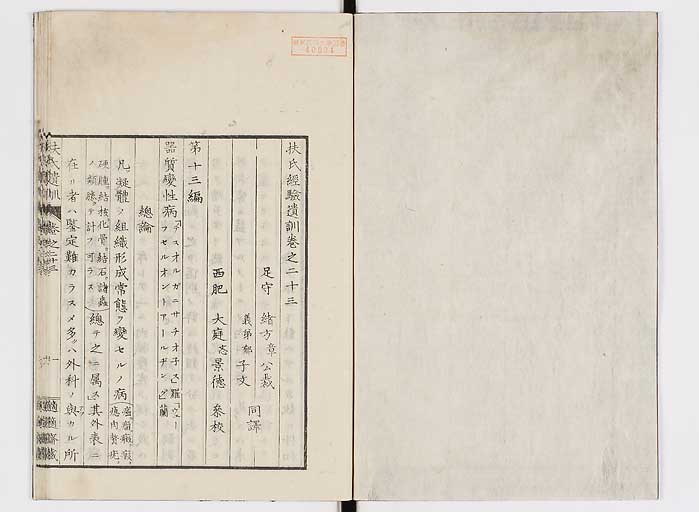 扶氏經驗遺訓卷之二十三
足守 緒方章公裁
義弟郁子文 同譯
西肥 大庭忞景德 參校
第十三編
器質變性病
總論
凡ソ凝體ノ組織形成常態ヲ變セルノ病
硬腫、結核、化骨、結石、諸蟲
ノ類勝テ計フ可ラス
總テ之ニ屬ス其外表ニ
在リ者ハ鑒定難カラス〆多クハ外科ノ與カル所
扶氏遺訓 卷之二十三
一
適適齋藏
40894